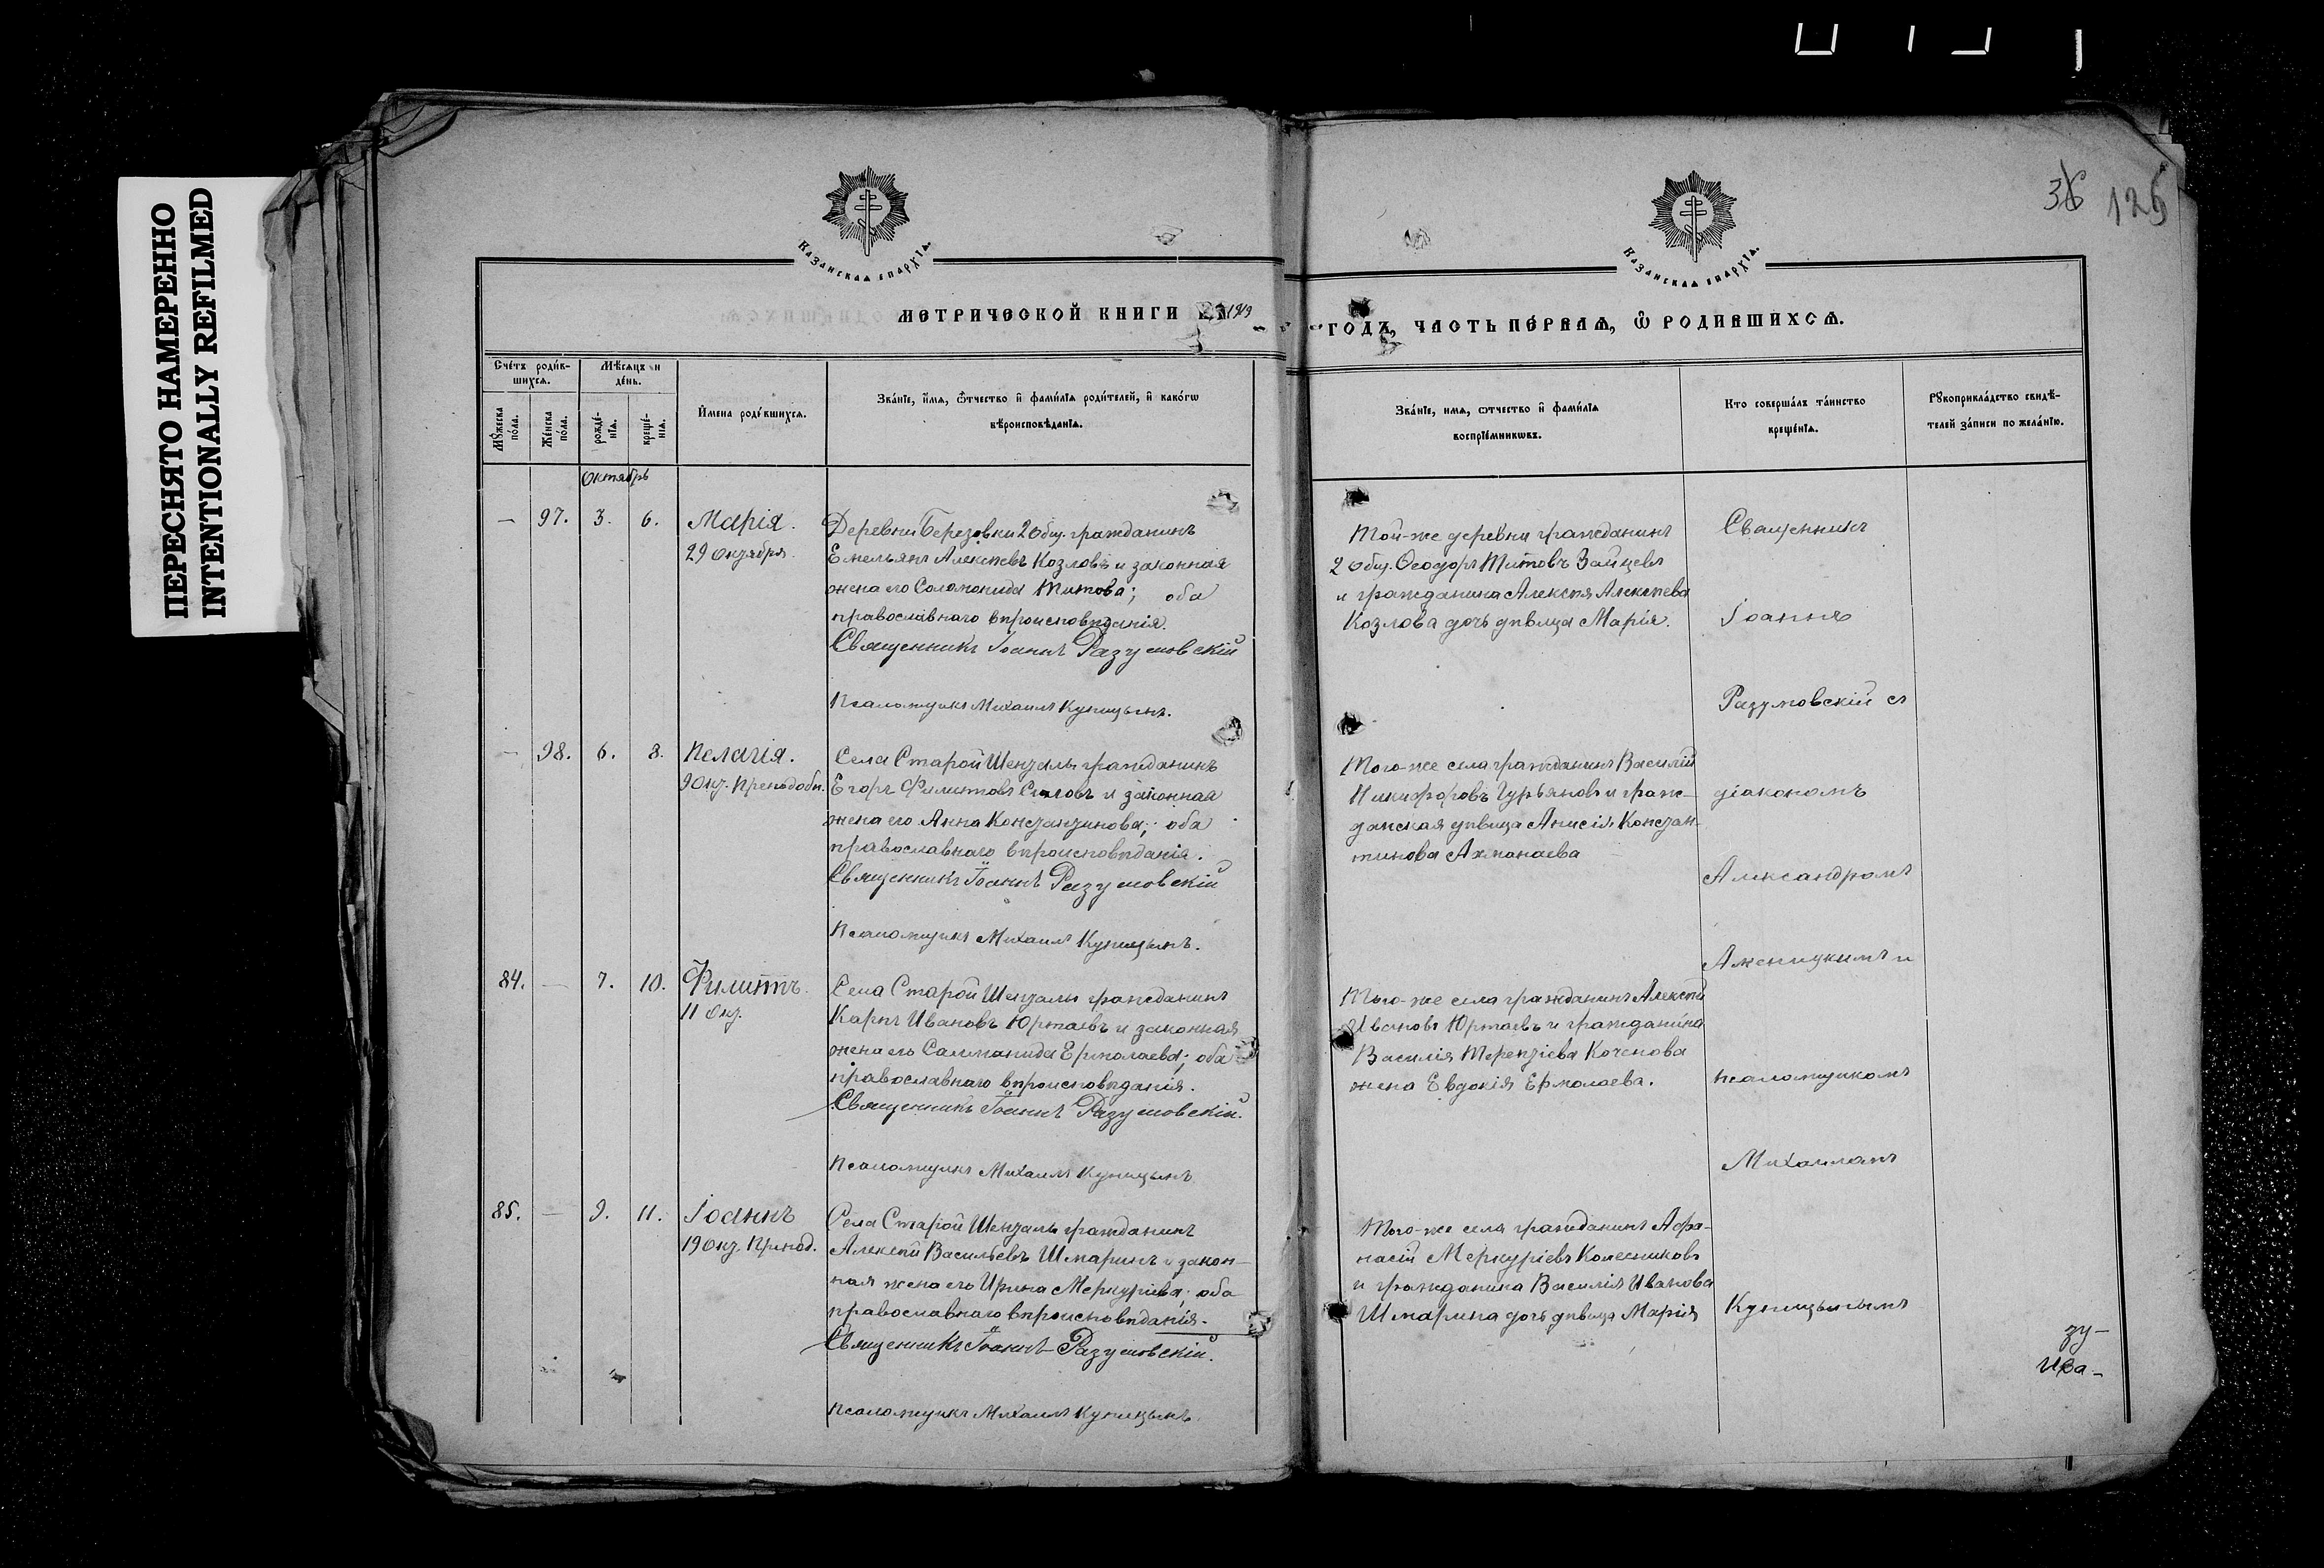 ПЕРЕСНЯТО НАМЕРЕННО
INTENTIONALLY REFILMED
36 125
Казанская епархїѧ.
Казанская епархїѧ.
МЕТРИЧЕСКОЙ КНИГИ НА 1919
ГОДЪ, ЧАСТЬ ПЕРВАѦ, Ѿ РОДИВШИХСѦ.
Сче́тъ роди́вшихсѧ.
Мѣ́сѧцъ и де́нь.
Мꙋ́жеска по́ла.
Же́нска по́ла.
рожде́нїѧ.
креще́нїѧ.
И҆мена роди́вшихсѧ.
Зва́нїе, и҆́мѧ, ѻ҆́тчество и҆ фами́лїѧ роди́телей, и҆ како́гѡ
вѣ̀роисповѣ́данїѧ.
Зва́нїе, имѧ, ѻтчество и҆ фами́лїѧ
воспрїе́мникѡвъ.
Кто соверша́лъ та́инство
креще́нїѧ.
Рꙋкоприкла́дство свидѣ́-
телей за́писи по жела́нїю.
Октябрь
— 97. 3. 6. Марія.
29 октября.
Деревни Березовки 2 общ. гражданинъ
Емельянъ Алексѣевъ Козловъ и законная
жена его Соломонида Титова; оба
православнаго вѣроисповѣданія.
Священникъ Іоаннъ Разумовскій
Псаломщикъ Михаилъ Куницынъ.
Той-же деревни гражданинъ
2 общ. Ѳеодоръ Титовъ Зайцевъ
и гражданина Алексѣя Алексѣева
Козлова дочь дѣвица Марія.
Священникъ
Іоаннъ
Разумовскій съ
— 98. 6. 8. Пелагія.
9 окт. Преподобн.
Села Старой Шенталы гражданинъ
Егоръ Филиповъ и законная
жена его Анна Константинова; оба
православнаго вѣроисповѣданія.
Священникъ Іоаннъ Разумовскій
Псаломщикъ Михаилъ Куницынъ.
Того-же села гражданинъ Василій
Никифоровъ Гурьяновъ и граж-
данская дѣвица Анисія Констан-
тинова
діакономъ
Александромъ
84. — 7. 10. Филиппъ.
11 окт.
Села Старой Шенталы гражданинъ
Карпъ Ивановъ Юртаевъ и законная
жена его Саломанида Ермолаева; оба
православнаго вѣроисповѣданія.
Священникъ Іоаннъ Разумовскій.
Псаломщикъ Михаилъ Куницынъ
Того-же села гражданинъ Алексѣй
Ивановъ Юртаевъ и гражданина
Василія Терентіева Коченова
жена Евдокія Ермолаева.
и
псаломщикомъ
Михаиломъ
85. — 9. 11. Іоаннъ
19 окт. Препод.
Села Старой Шенталы гражданинъ
Алексѣй Васильевъ Шмаринъ и закон-
ная жена его Ирина Меркуріева; оба
православнаго вѣроисповѣданія.
Священникъ Іоаннъ Разумовскій.
Псаломщикъ Михаилъ Куницынъ.
Того-же села гражданинъ Афа-
насій Меркуріевъ Колесниковъ
и гражданина Василія Иванова
Шмарина дочь дѣвица Марія
Куницынымъ
зу-
Ива-